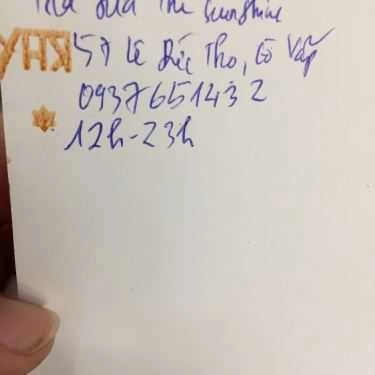 Trà sữa The Sunshine
57 Lê Đức Thọ, Gò Vấp
0937651432
12h-23h